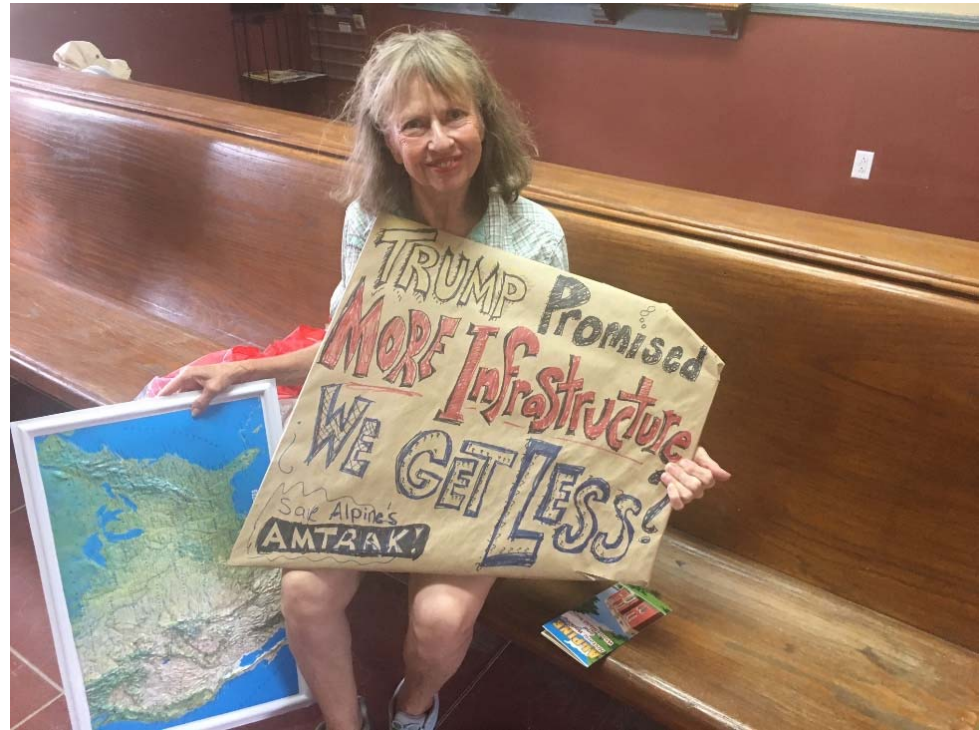 TRUMP Promised
MORE Infrastructure
WE GET LESS?
Save Alpine's
AMTRAK!
ALPINE